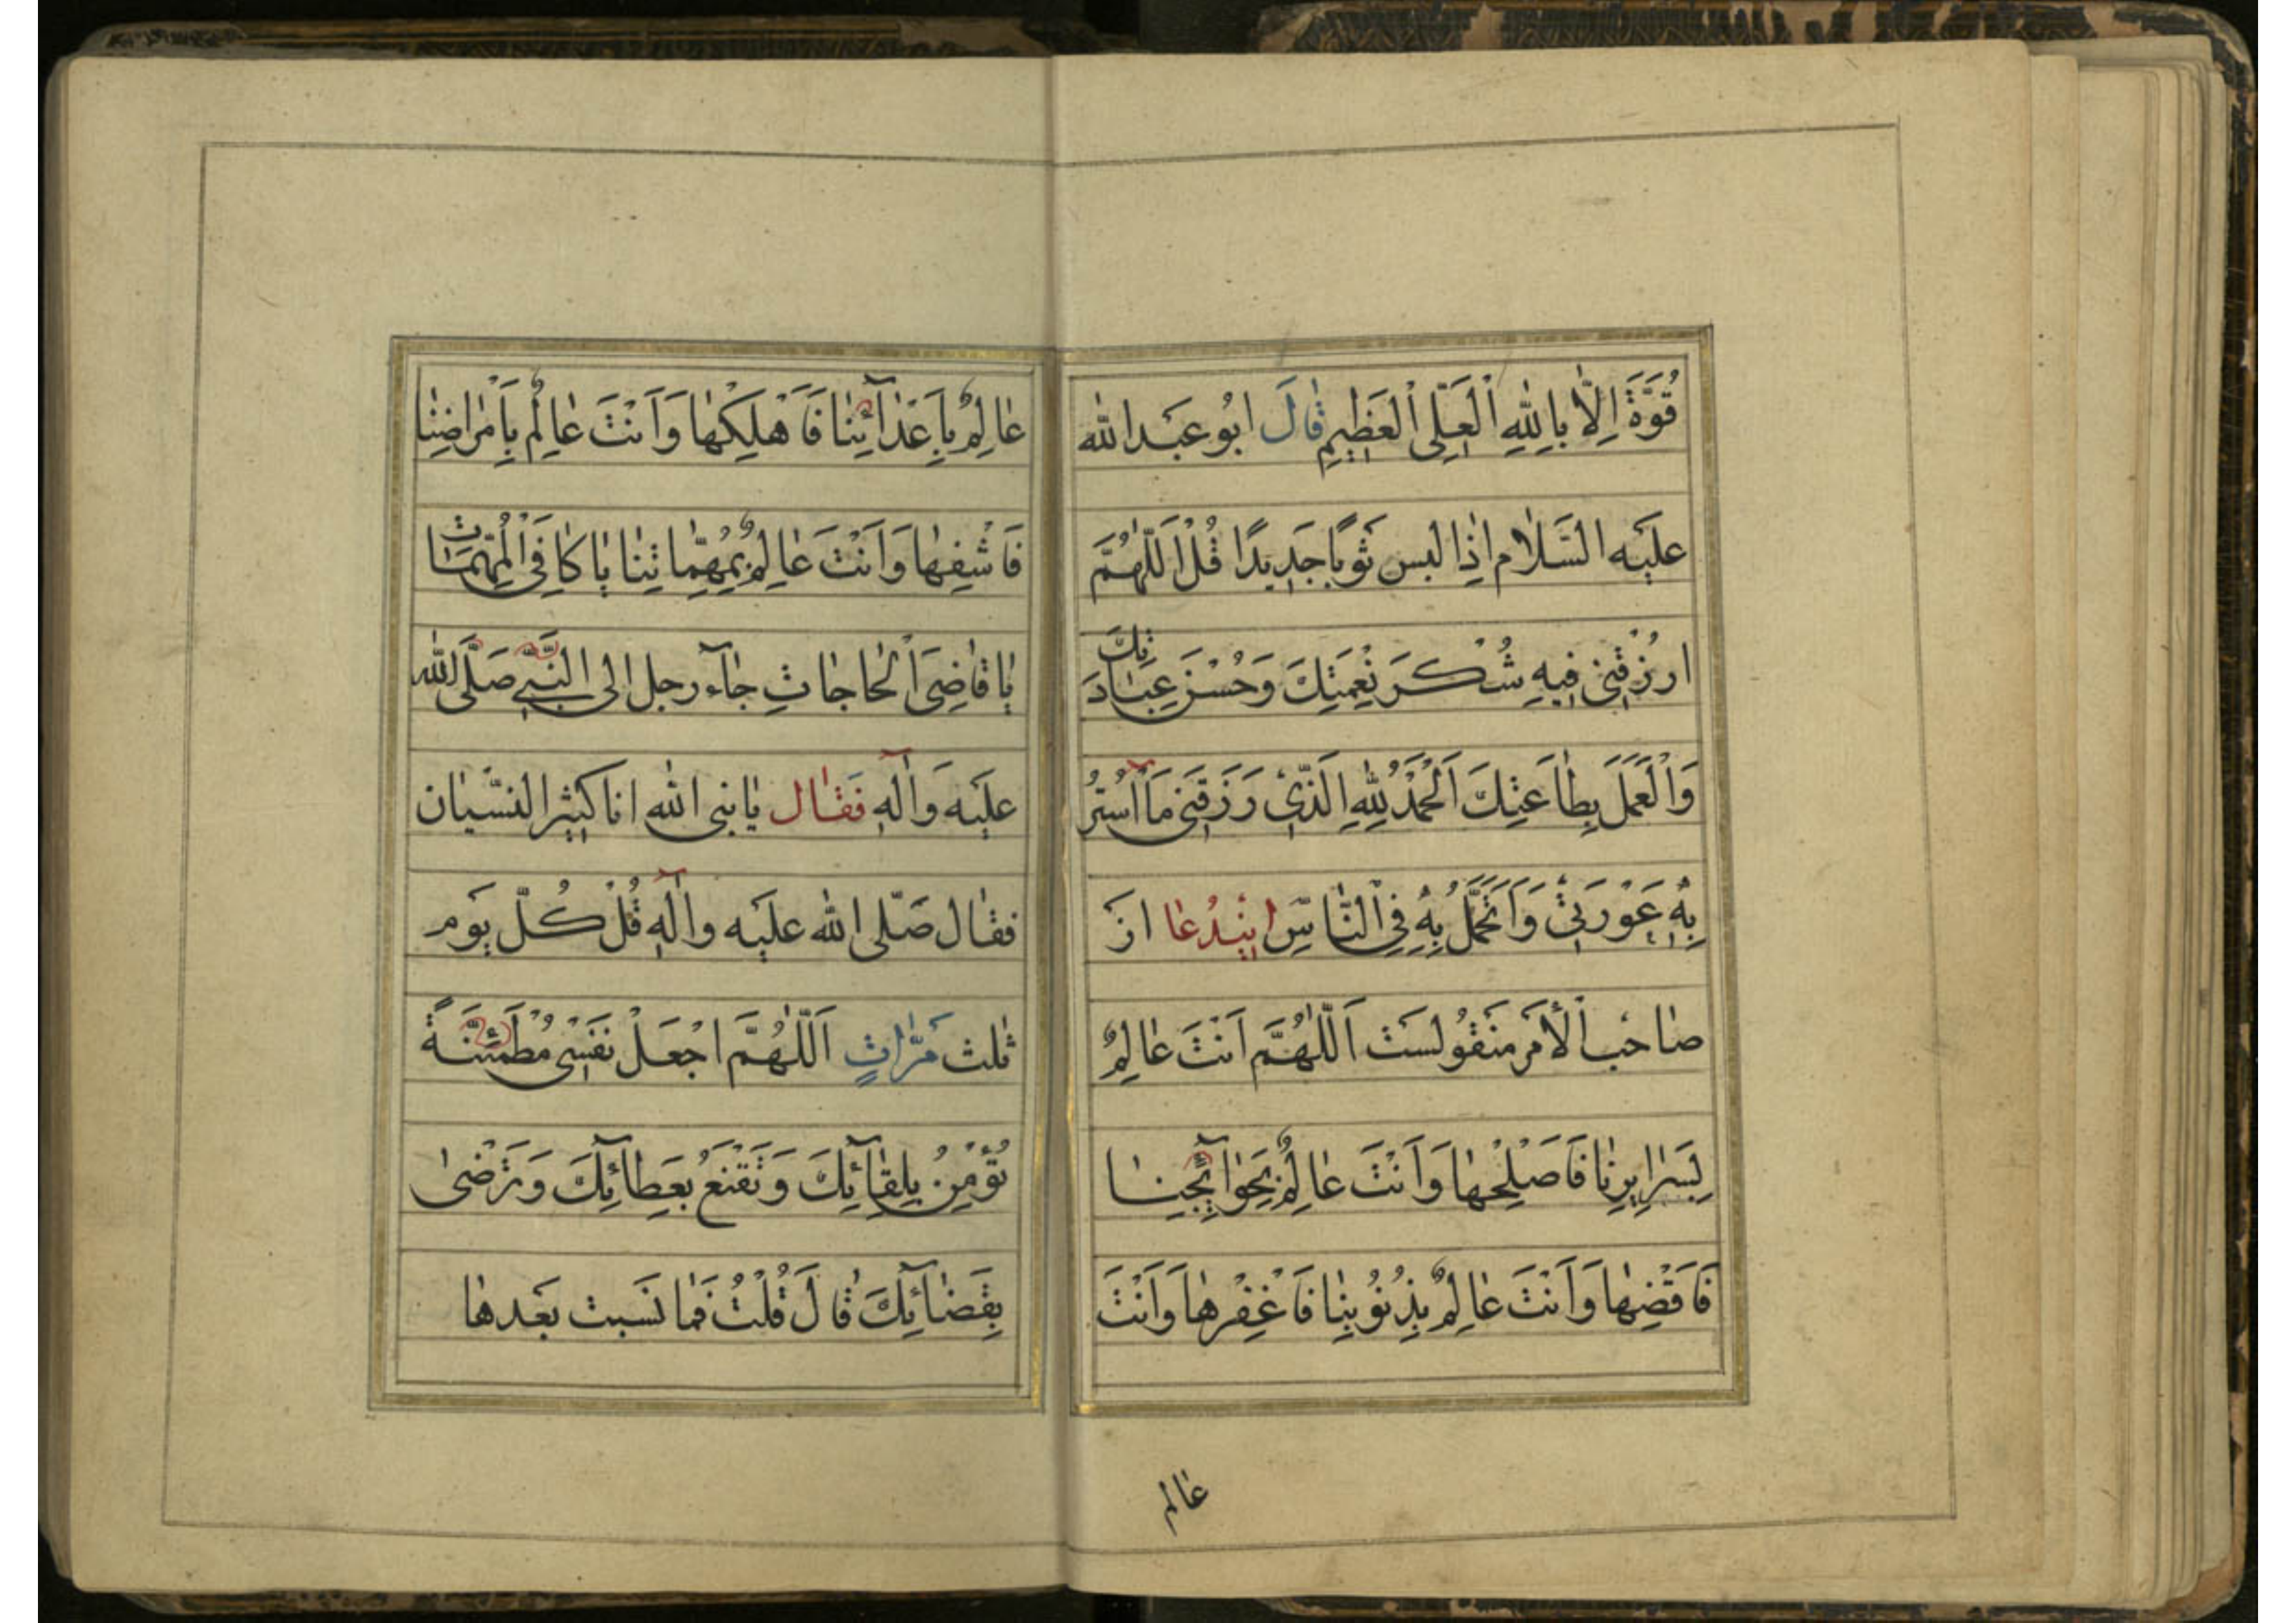 قُوَّةَ اِلّٰا بِاللّٰهِ الْعَلِّی الْعَظٖیمِ قٰالَ ابُو عَبْدالله
علَیْه السَّلٰام اِذٰا لبس ثَوبًا جَدٖیدًا قُلْ اَللّٰهُمَّ
ارزُقْنٖی فٖیهِ شُکْرَ نِعْمَتِكَ وَحُسْنَ عِبٰادَتِكَ
وَالْعَمَلَ بِطٰاعَتِكَ اَلْحَمْدُ لِلّٰهِ الَّذٖی رَزَقَنٖی مٰا اَسْتُرُ
بِهٖ عَوْرَتٖی وَاَتَجَمَّلُ بِهٖ فِی النّٰاسِ اینْدُعٰا ازَ
صٰاحْب الْأَمَر مَنقُولسَت اَللّٰهُمَّ اَنْتَ عٰالِمٌ
بِسَرٰایِرِنٰا فَاَصْلِحْهٰا وَاَنْتَ عٰالِمٌ بِحَوٰآئِجِنٰا
فَاَقْضِهٰا وَاَنْتَ عٰالِمٌ بِذُنُوْبِنٰا فَاغْفِرْهٰا وَاَنْتَ
عٰالم
عٰالِمٌ بِاَعْدٰآئِنٰا فَاَهْلِکْهٰا وَاَنْتَ عٰالِمٌ بِاَمْرٰاضِنٰا
فَاَشْفِهٰا وَاَنْتَ عٰالِمٌ بِمُهِمّٰاتِنٰا یٰا کٰافِیَ الْمُهِمّٰاتْ
یٰا قٰاضِیَ الْحٰاجٰاتِ جٰآء رجل الی النَّبِیِّ صَلَّی الله
علَیْه وَاٰلهِ فَقٰال یٰا نبی الله انا کَثٖیر النسّیٰان
فقٰال صَلّی الله علَیْه واٰلهِ قُلْ کُلّ یَوم
ثٰلث مَرّٰاتٍ اَللّٰهُمَّ اجْعَلْ نَفْسٖی مُطْمَئِنَّةً
تُؤْمِنُ بِلِقٰآئِكَ وَتَقْنَعُ بَعِطٰآئِكَ وَتَرْضٰی
بِقَضٰآئِكَ قٰالَ قُلْتُ فَمٰا نَسَیت بَعْدهٰا